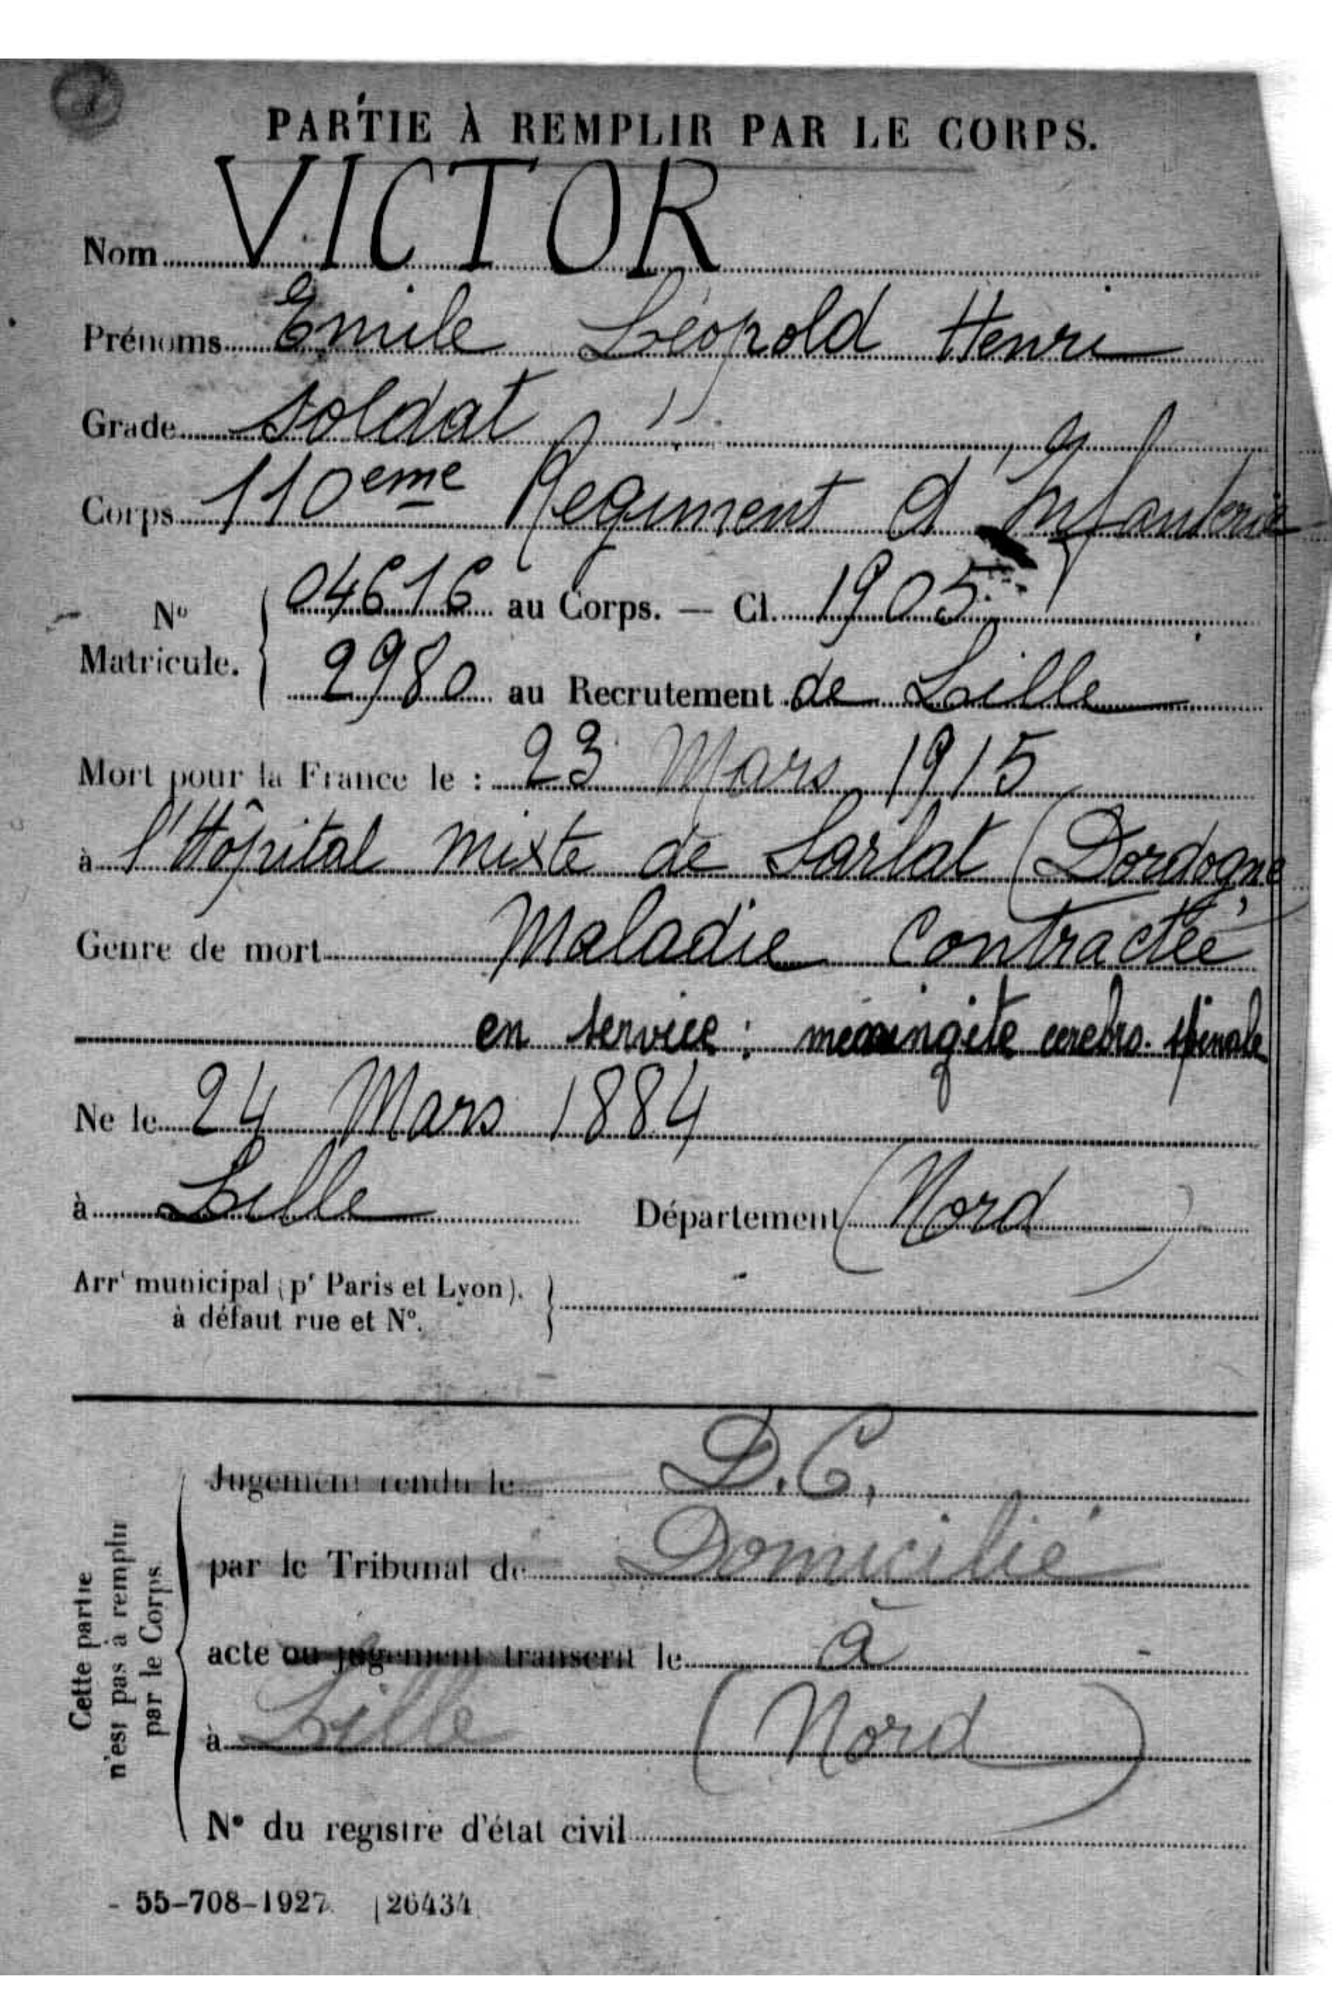 PARTIE À REMPLIR PAR LE CORPS.
Nom VICTOR
Prénoms Emile Léopold Henri
Grade Soldat
Corps 110eme Régiment d'Infanterie
No Matricule. 04616 au Corps. — Cl. 1905
2980 au Recrutement de Lille
Mort pour la France le : 23 Mars 1915
à l'Hôpital mixte de Sarlat (Dordogne
Genre de mort Maladie Contractée
en service : méningite cérébro-spinale
Né le 24 Mars 1884
à Lille Département (Nord)
Arrt municipal (pr Paris et Lyon),
à défaut rue et No.
Cette partie
n'est pas à remplir
par le Corps
Jugement rendu le D.C.
par le Tribunal de Domicilié
acte ou jugement transcrit le à
à Lille (Nord)
No du registre d'état civil
- 55-708-1927. |26434.